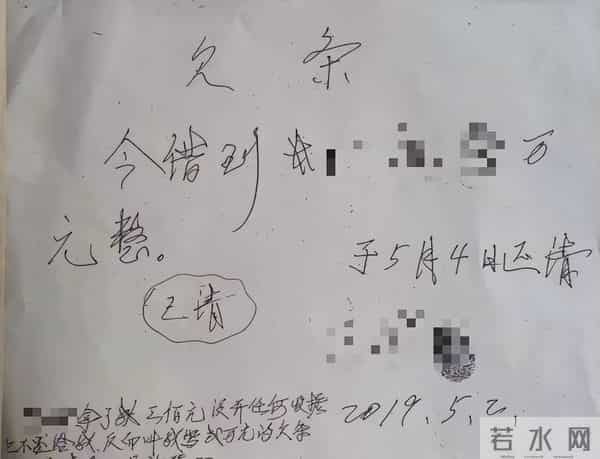 欠条
今借到 万
元整。
于5月4日还清
已清
拿了我 三佰元 没开任何收据
2019.5.2.
不还给我,反而叫我写贰万元的欠条
若水网